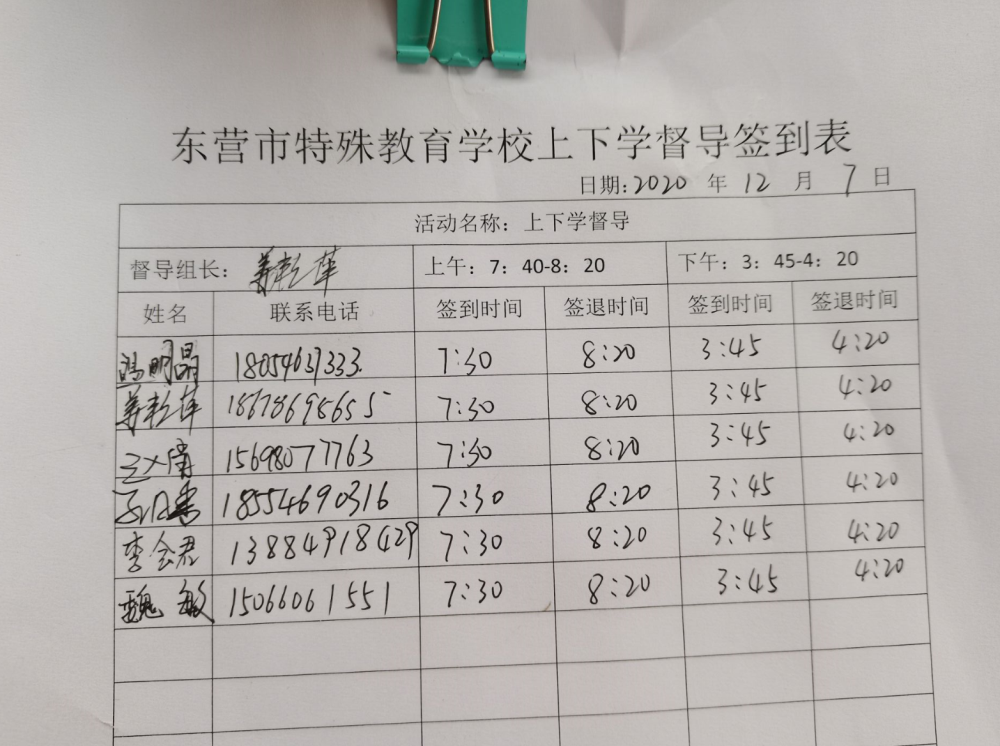 东营市特殊教育学校上下学督导签到表
日期:2020 年 12 月 7 日
活动名称：上下学督导
督导组长： 姜彩萍 上午：7：40-8：20 下午：3：45-4：20
姓名 联系电话 签到时间 签退时间 签到时间 签退时间
冯明晶 18054631333 7:30 8:20 3:45 4:20
姜彩萍 18678698655 7:30 8:20 3:45 4:20
15698077763 7:30 8:20 3:45 4:20
18554690316 7:30 8:20 3:45 4:20
李会君 13884918429 7:30 8:20 3:45 4:20
魏敏 15066061551 7:30 8:20 3:45 4:20